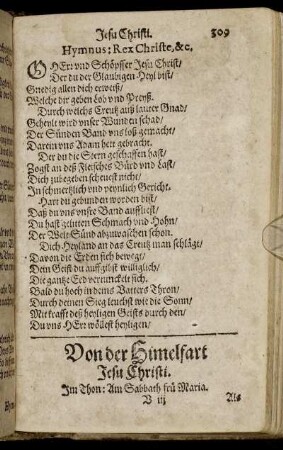 Jesu Christi. 309
Hymnus: Rex Christe, &c.
O HErr vnd Schöpffer Jesu Christ/
Der du der Glaubigen Heyl bist/
Gnedig allen dich erweist/
Welche dir geben Lob vnd Preyß.
Durch welchs Creutz auß lauter Gnad/
Geheylt wird vnser Wunden schad/
Der Sünden Band vns loß gemacht/
Darein vns Adam hett gebracht.
Der du die Stern geschaffen hast/
Zogst an deß Fleisches Bürd vnd Last/
Dich zubegeben schewest nicht/
In schmertzlich vnd peynlich Gericht.
Hart du gebunden worden bist/
Daß du vns vnsre Band aufflöst/
Du hast gelitten Schmach vnd Hohn/
Der Welt Sünd abzuwaschen schon.
Dich Heyland an das Creutz man schlägt/
Davon die Erden sich bewegt/
Dein Geist du auffgibst williglich/
Die gantze Erd verdunckelt sich.
Bald du hoch in deins Vatters Thron/
Durch deinen Sieg leuchst wie die Sonn/
Mit krafft deß heyligen Geists durch den/
Du vns HErr wöllest heyligen/
Von der Himelfart
Jesu Christi.
Im Thon: Am Sabbath frü Maria.
V iij Als